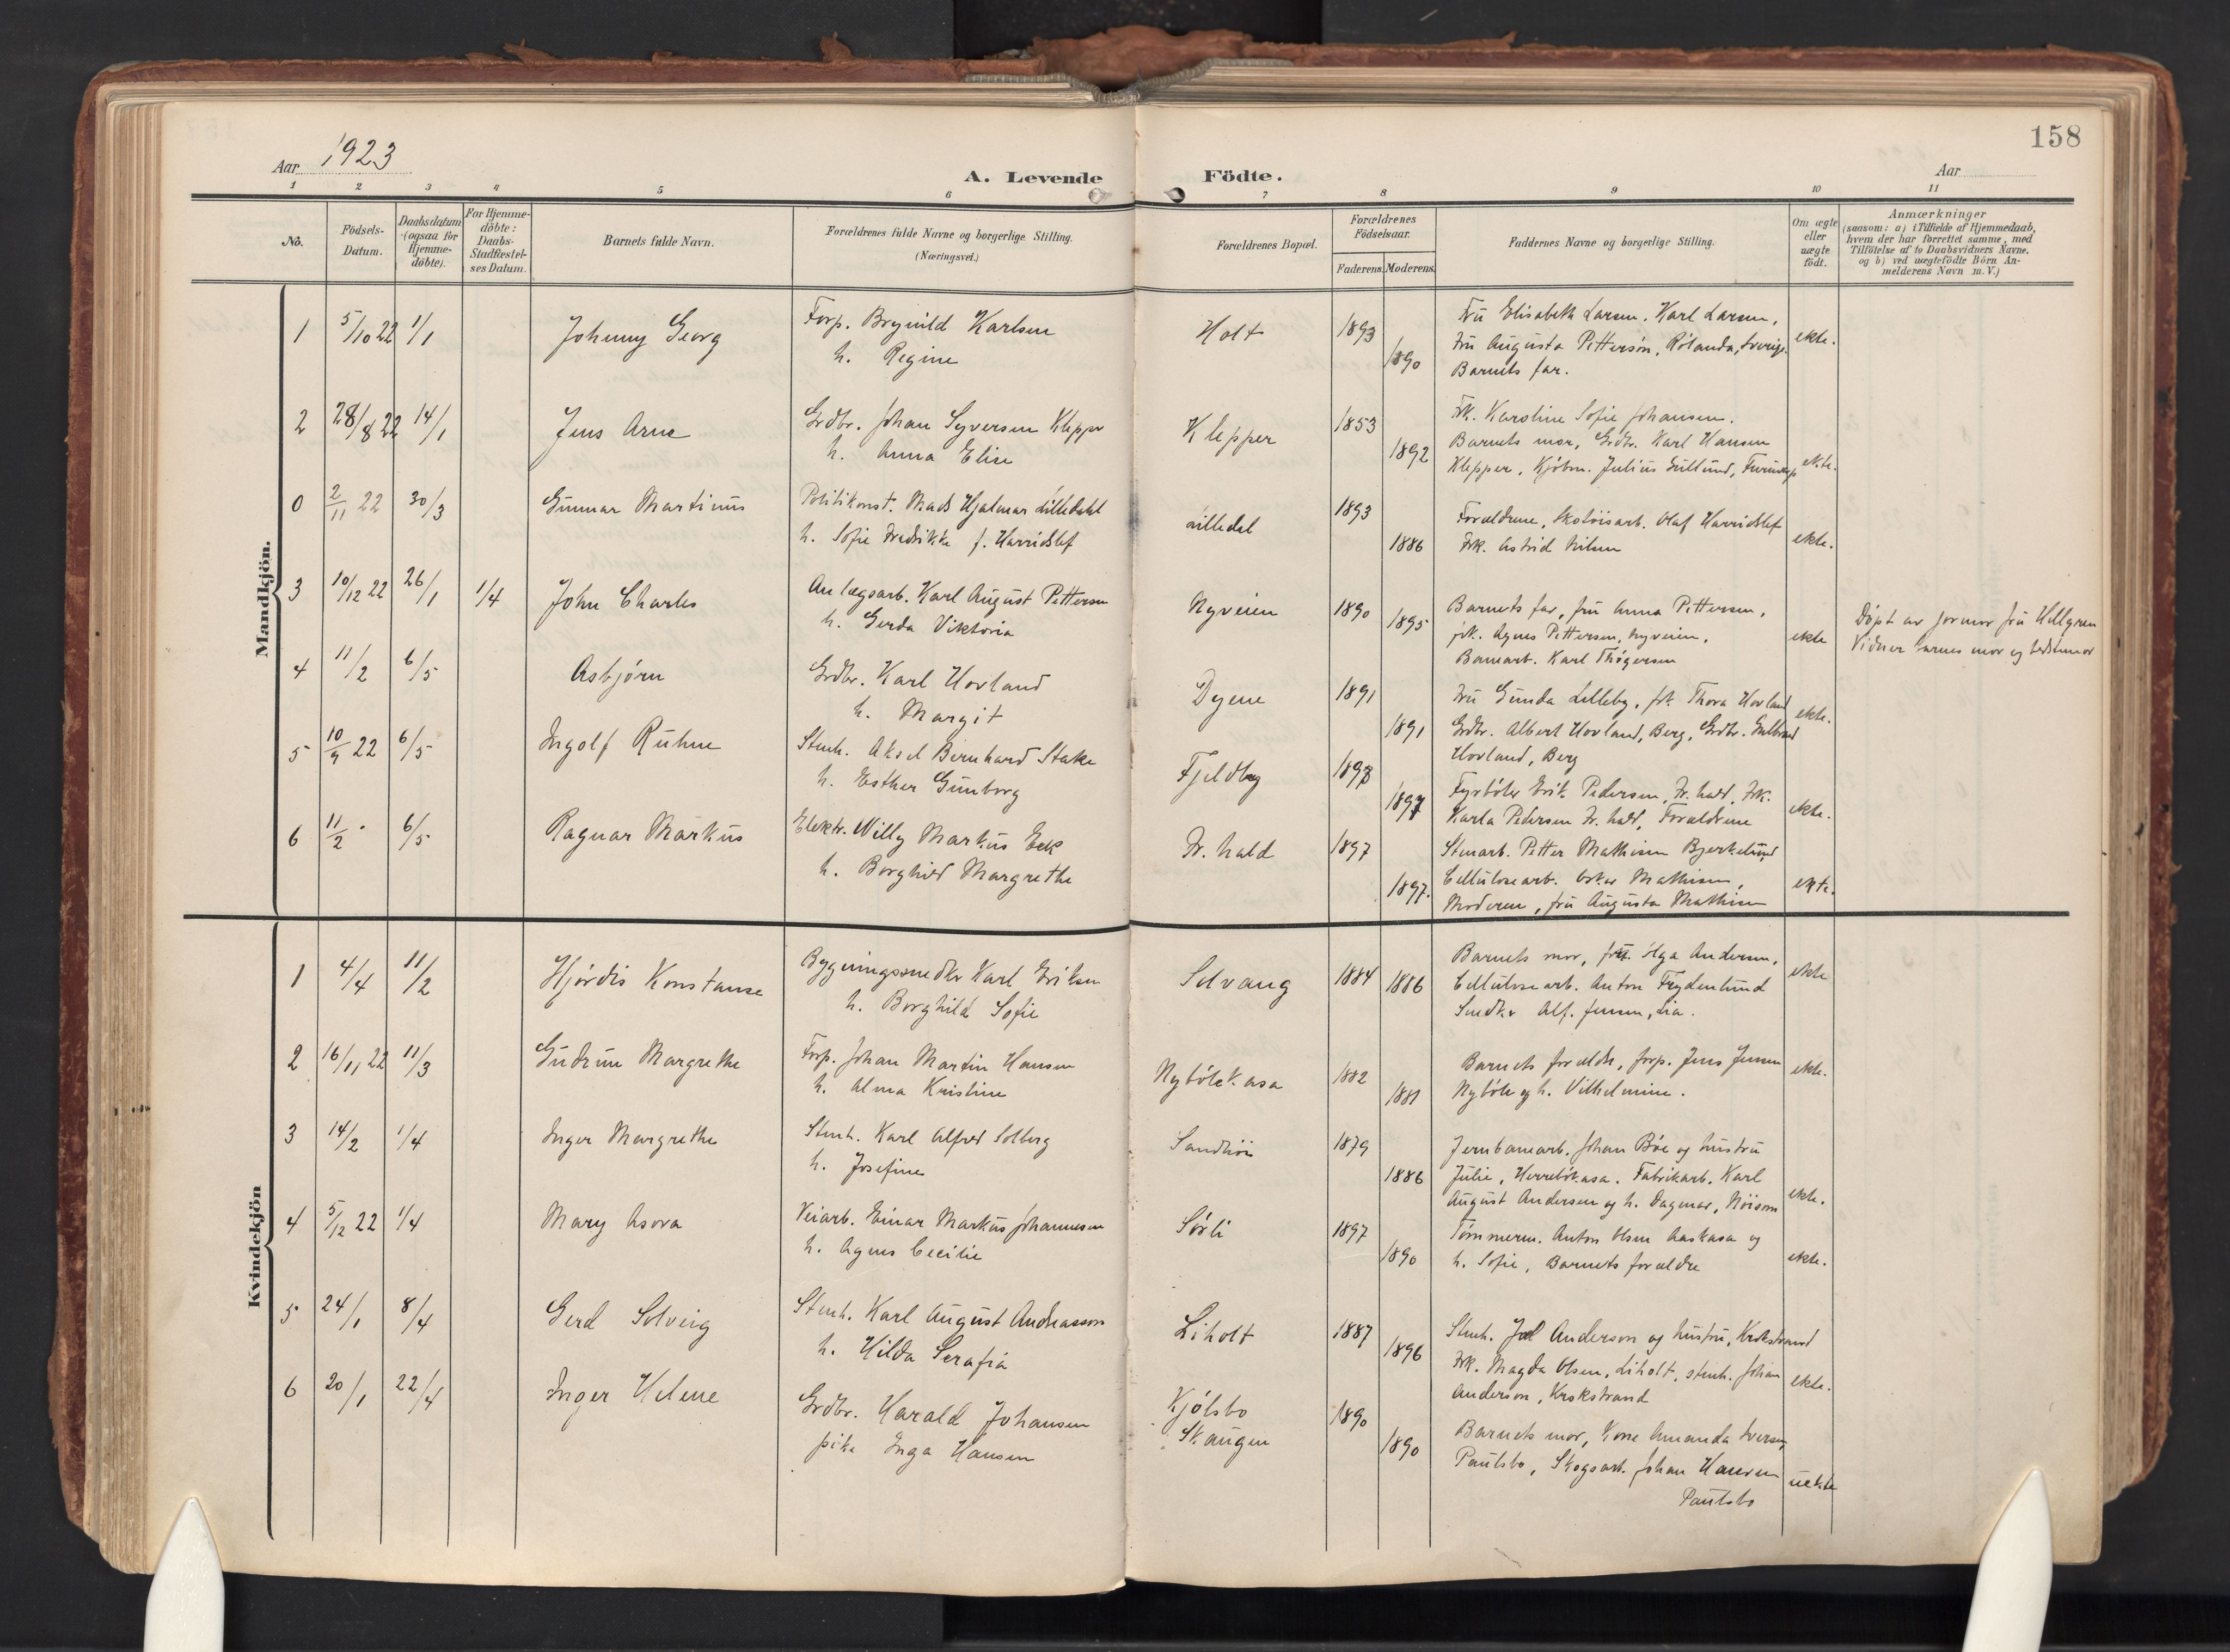 158
Aar 1923
A. Levende Födte.
Aar
1 2 3 4 5 6 7 8 9 10 11
No.
Födsels-
Datum.
Daabsdatum
(ogsaa for
Hjemme-
döbte).
For Hjemme-
döbte:
Daabs-
Stadfæstel-
ses Datum.
Barnets fulde Navn.
Forældrenes fulde Navne og borgerlige Stilling.
(Næringsvei.)
Forældrenes Bopæl.
Forældrenes
Födselsaar.
Faderens. Moderens.
Faddernes Navne og borgerlige Stilling.
Om ægte
eller
uægte
födt.
Anmærkninger
(saasom: a) i Tilfælde af Hjemmedaab,
hvem der har forrettet samme, med
Tilföielse af to Daabsvidners Navne,
og b) ved uægtefödte Börn An-
melderens Navn m. V.)
Mandkjön.
1 5/10 22 1/1 Johnny Georg
Forp. Brynild Karlsen
h. Regine
Holt 1893 1890
Fru Elisabeth Larsen. Karl Larsen,
Fru Augusta Pettersön, Rölanda, Sverige.
Barnets far.
ekte.
2 28/8 22 14/1 Jens Arne
Grdbr. Johan Syversen Klepper
h. Anna Elise
Klepper 1853 1892
Frk. Karoline Sofie Johansen.
Barnets mor, Grdbr. Karl Hansen
Klepper, Kjöbm. Julius Gullund,
ekte.
0 2/11 22 30/3 Gunnar Martinus
Politikonst. Mads Hjalmar Lilledahl
h. Sofie Fredrikke f. Harridslef
Lilledal 1893 1886
Forældrene, Skotöisarb. Olaf Harridslef
Frk. Astrid Nilsen
ekte.
3 10/12 22 26/1 1/4 John Charles
Anlægsarb. Karl August Pettersen
h. Gerda Viktoria
Nyveien 1890 1895
Barnets far, fru Anna Pettersen,
frk. Agnes Pettersen, Nyveien.
Banearb. Karl Thögersen
ekte
Döpt av jormor fru Hellgren
Vidner barnes mor og bedstemor
4 11/2 6/5 Asbjörn
Grdbr. Karl Hovland
h. Margit
Dyene 1891 1891
Fru Gunda Lilleby, frk. Thora Hovland
Grdbr. Albert Hovland, Berg, Grdbr. Gulbrand
Hovland, Berg
ekte.
5 10/9 22 6/5 Ingolf Ruhne
Stenh. Aksel Bernhard Stake
h. Esther Gunborg
Fjeldby 1898 1897
Fyrböter Erik Pedersen, Fr.hald, Frk.
Karla Pedersen Fr.hald, Forældrene
ekte.
6 11/2 6/5 Ragnar Markus
Elektr. Willy Markus Eek
h. Borghild Margrethe
Fr.hald 1897 1897.
Stenarb. Petter Mathisen Bjerkelund
Cellulosearb. Oskar Mathisen,
Moderen, fru Augusta Mathisen
ekte.
Kvindekjön
1 4/4 11/2 Hjördis Konstanse
Bygningssnedker Karl Eriksen
h. Borghild Sofie
Solvang 1884 1886
Barnets mor, fru Olga Andersen,
Cellulosearb. Anton Frydenlund
Snedker Alf. Jensen, Lia.
ekte
2 16/11 22 11/3 Gudrun Margrethe
Forp. Johan Martin Hansen
h. Alma Kristine
Nybölekasa 1882 1881
Barnets forældre, forp. Jens Jensen
Nyböle og h. Vilhelmine.
ekte.
3 14/2 1/4 Inger Margrethe
Stenh. Karl Alfred Solberg
h. Josefine
Sandhöi 1879 1886
Jernbanearb. Johan Böe og hustru
Julie, Herrebökasa. Fabrikarb. Karl
August Andersen og h. Dagmar,
ekte.
4 5/12 22 1/4 Mary Asora
Veiarb. Einar Markus Johannesen
h. Agnes Cecilie
Sörli 1897 1890
Tömmerm. Anton Olsen Aaskasa og
h. Sofie, Barnets forældre
ekte.
5 24/1 8/4 Gerd Solveig
Stenh. Karl August Andreasson
h. Hilda Serafia
Liholt 1887 1896
Stenh. Joel Anderson og hustru, Krokstrand
Frk. Magda Olsen, Liholt, stenh. Johan
Anderson, Krokstrand
ekte.
6 20/1 22/4 Inger Helene
Grdbr. Harald Johansen
pike Inga Hansen
Kjölsbo
Skaugen
1890 1890
Barnets mor, Kone Amanda Iversen,
Paulsbo, Skogsarb. Johan Hansen
Paulsbo
uekte